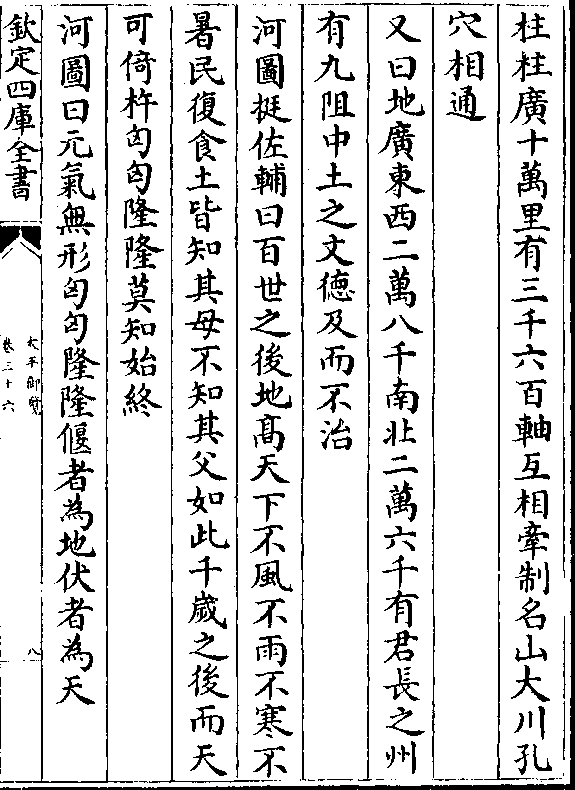 柱柱廣十萬里有三千六百軸互相牽制名山大川孔
穴相通
又曰地廣東西二萬八千南北二萬六千有君長之州
有九阻中土之文德及而不治
河圖挺佐輔曰百世之後地髙天下不風不雨不寒不
暑民復食土皆知其母不知其父如此千歲之後而天
可倚杵匈匈隆隆莫知始終
河圖曰元氣無形匈匈隆隆偃者為地伏者為天
欽定四庫全書
太平御覽
卷三十六
八